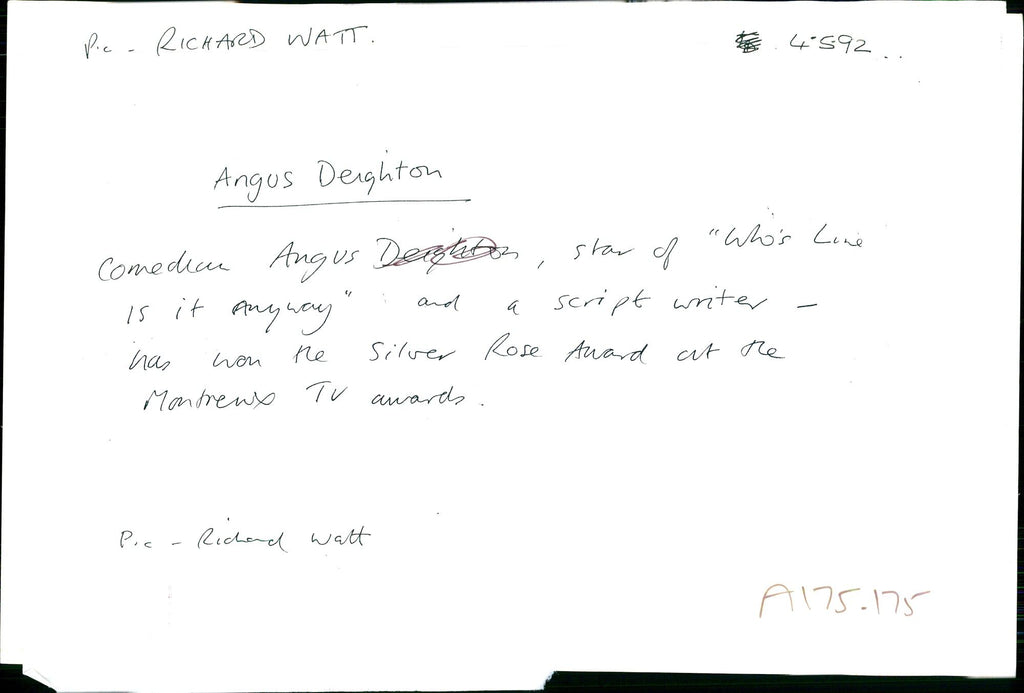 Pic - RICHARD WATT. 4.5.92...
Angus Deighton
Comedian Angus Deighton, star of "Who's Line
is it Anyway" and a script writer -
has won the Silver Rose Award at the
Montreux TV awards.
Pic - Richard Watt
A175.175